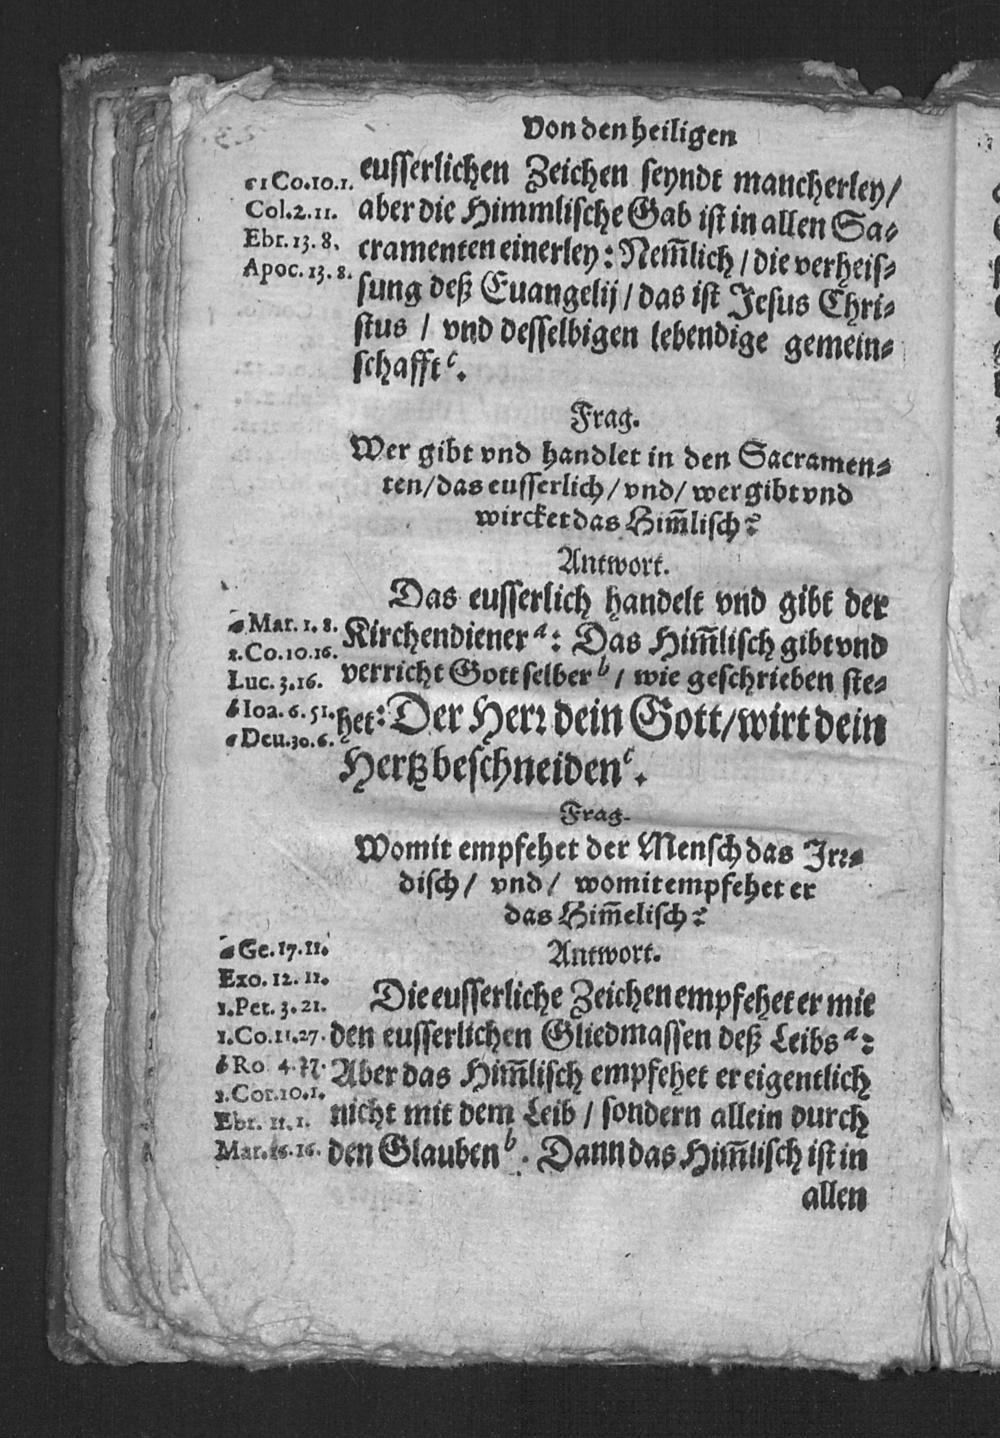 Von den heiligen
eusserlichen Zeichen seyndt mancherley/
aber die Himmlische Gab ist in allen Sa⸗
cramenten einerley: Nem̃lich / die verheis⸗
sung deß Euangelij / das ist Jesus Chri⸗
stus / vnd desselbigen lebendige gemein⸗
schafft c.
c 1 Co. 10. 1.
Col. 2. 11.
Ebr. 13. 8.
Apoc. 13. 8.
Frag.
Wer gibt vnd handlet in den Sacramen⸗
ten/ das eusserlich / vnd / wer gibt vnd
wircket das Him̃lisch?
Antwort.
Das eusserlich handelt vnd gibt der
Kirchendiener a: Das Him̃lisch gibt vnd
verricht Gott selber b / wie geschrieben ste⸗
het: Der Herr dein Gott / wirt dein
Hertz beschneiden c.
a Mar. 1. 8.
1. Co. 10. 16.
Luc. 3. 16.
b Ioa. 6. 51.
c Deu. 30. 6.
Frag.
Womit empfehet der Mensch das Irr⸗
disch / vnd / womit empfehet er
das Him̃elisch?
Antwort.
Die eusserliche Zeichen empfehet er mit
den eusserlichen Gliedmassen deß Leibs a:
Aber das Him̃lisch empfehet er eigentlich
nicht mit dem Leib / sondern allein durch
den Glauben b. Dann das Him̃lisch ist in
a Ge. 17. 11.
Exo. 12. 11.
1. Pet. 3. 21.
1. Co. 11. 27.
b Ro 4.
1. Cor. 10. 1.
Ebr. 11. 1.
Mar. 16. 16.
allen